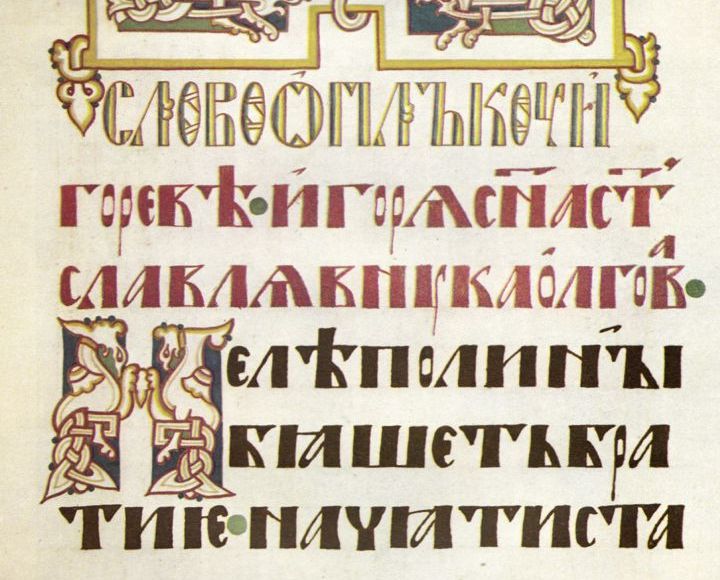 СЛОВОѠПЛЪКОУИ
ГОРЕВѢ·ИГОРѦСН҃АСТ҃
СЛАВЛѦВНУКАОЛГОВА·
НЕЛѢПОЛИНꙐ
БꙖШЕТЬБРА
ТИѤ·НАЧꙖТИСТА